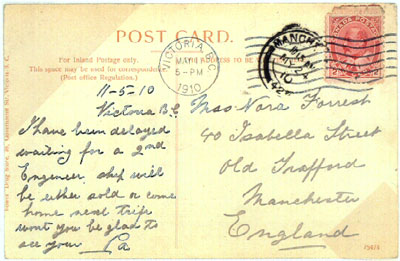 POST CARD.
For Inland Postage only.
This space may be used for correspondence
(Post office Regulation.)
ADDRESS TO BE
VICTORIA, B.C.
MAY 11
5-PM
1910
MANCH
CANADA POSTAGE
11-5-10
Victoria B.C.
I have been delayed
waiting for a 2nd
Engineer ship will
be either sold or come
home next trip
wont you be glad to
see your
Miss Nora Forrest
40 Isabella Street
Old Trafford
Manchester
England